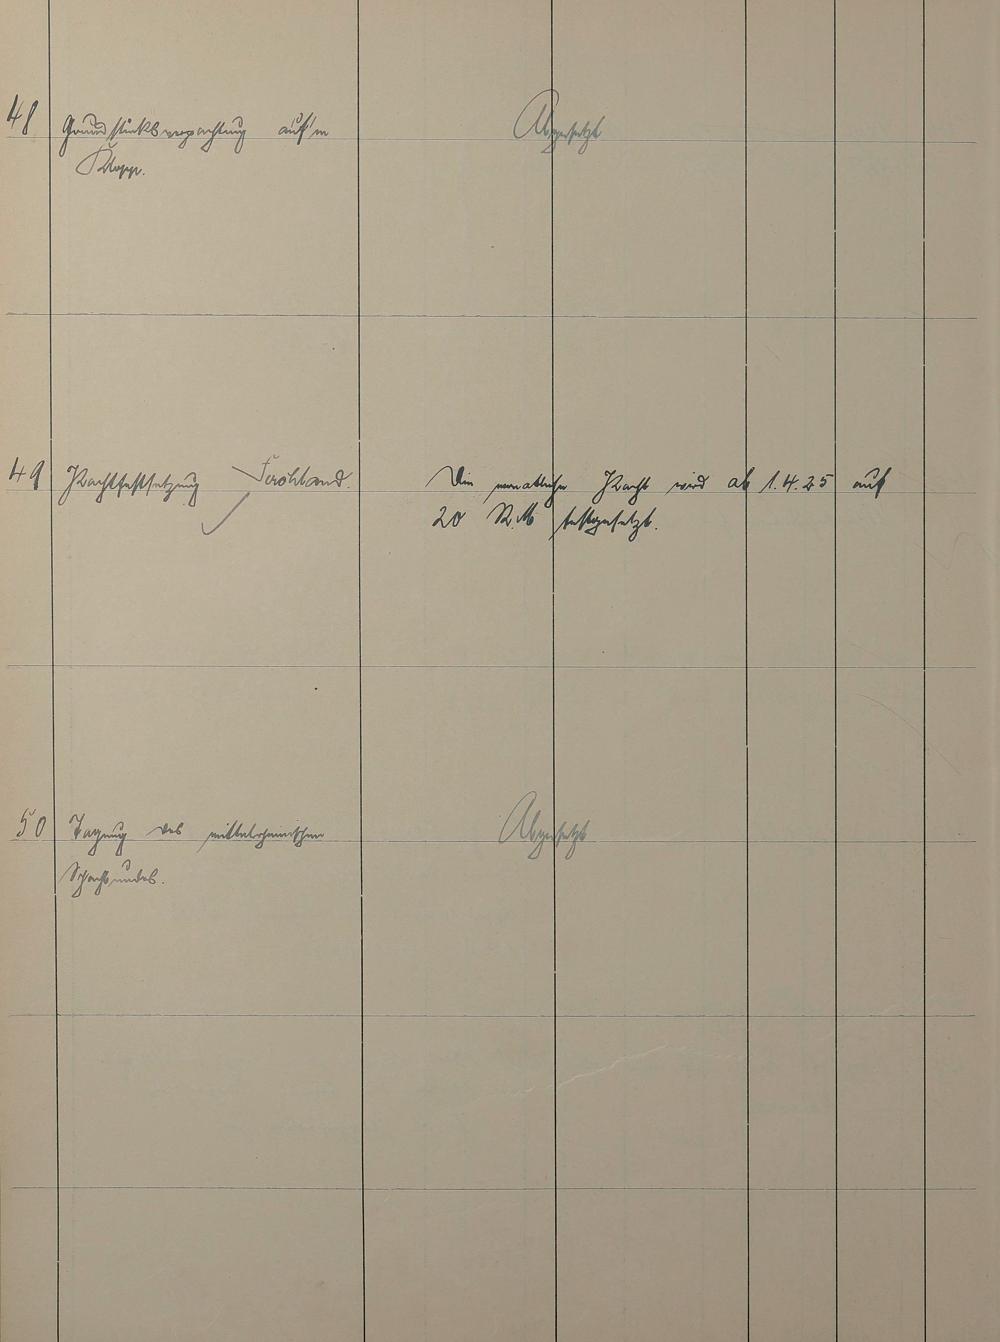 48 Grundstücksverpachtung auf'm Abgesetzt
Klopp.
49 Pachtfestsetzung Die monatliche Pacht wird ab 1.4.25 auf
20 R.M festgesetzt.
50 Tagung des mittelrheinischen Abgesetzt
Schachbundes.